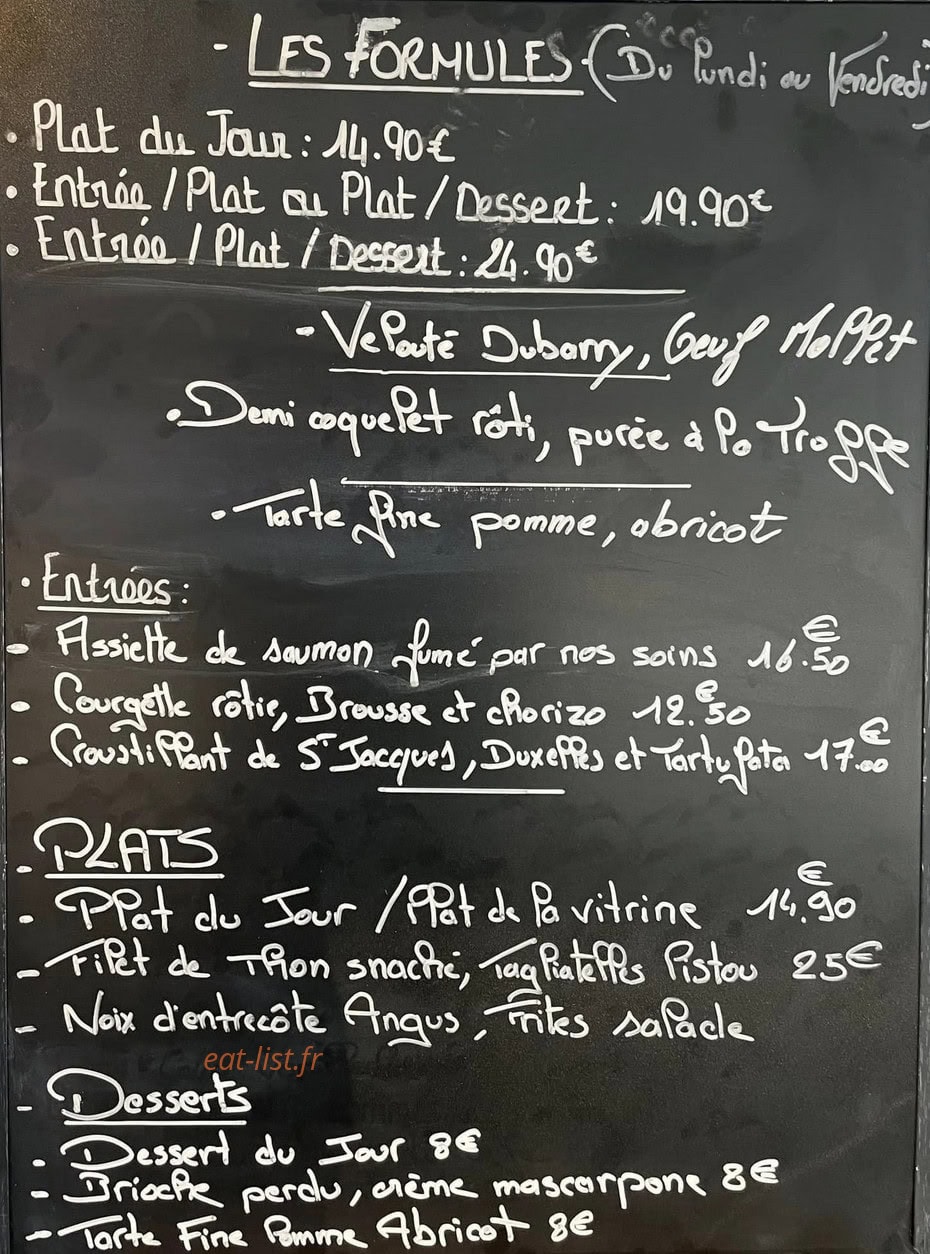 - LES FORMULES (Du Lundi au Vendredi)
• Plat du Jour : 14.90€
• Entrée / Plat ou Plat / Dessert : 19.90€
• Entrée / Plat / Dessert : 24.90€
- Velouté Dubarry, Oeuf Mollet
• Demi coquelet rôti, purée à la Truffe
- Tarte fine pomme, abricot
• Entrées :
- Assiette de saumon fumé par nos soins 16.50€
- Courgette rôtie, Brousse et chorizo 12.50€
- Croustillant de St Jacques, Duxelles et Tartufata 17.00€
- PLATS
- Plat du Jour / Plat de la vitrine 14.90€
- Filet de Thon snacké, Tagliatelles Pistou 25€
- Noix d'entrecôte Angus, Frites salade
eat-list.fr
- Desserts
- Dessert du Jour 8€
- Brioche perdu, crème mascarpone 8€
- Tarte Fine Pomme Abricot 8€